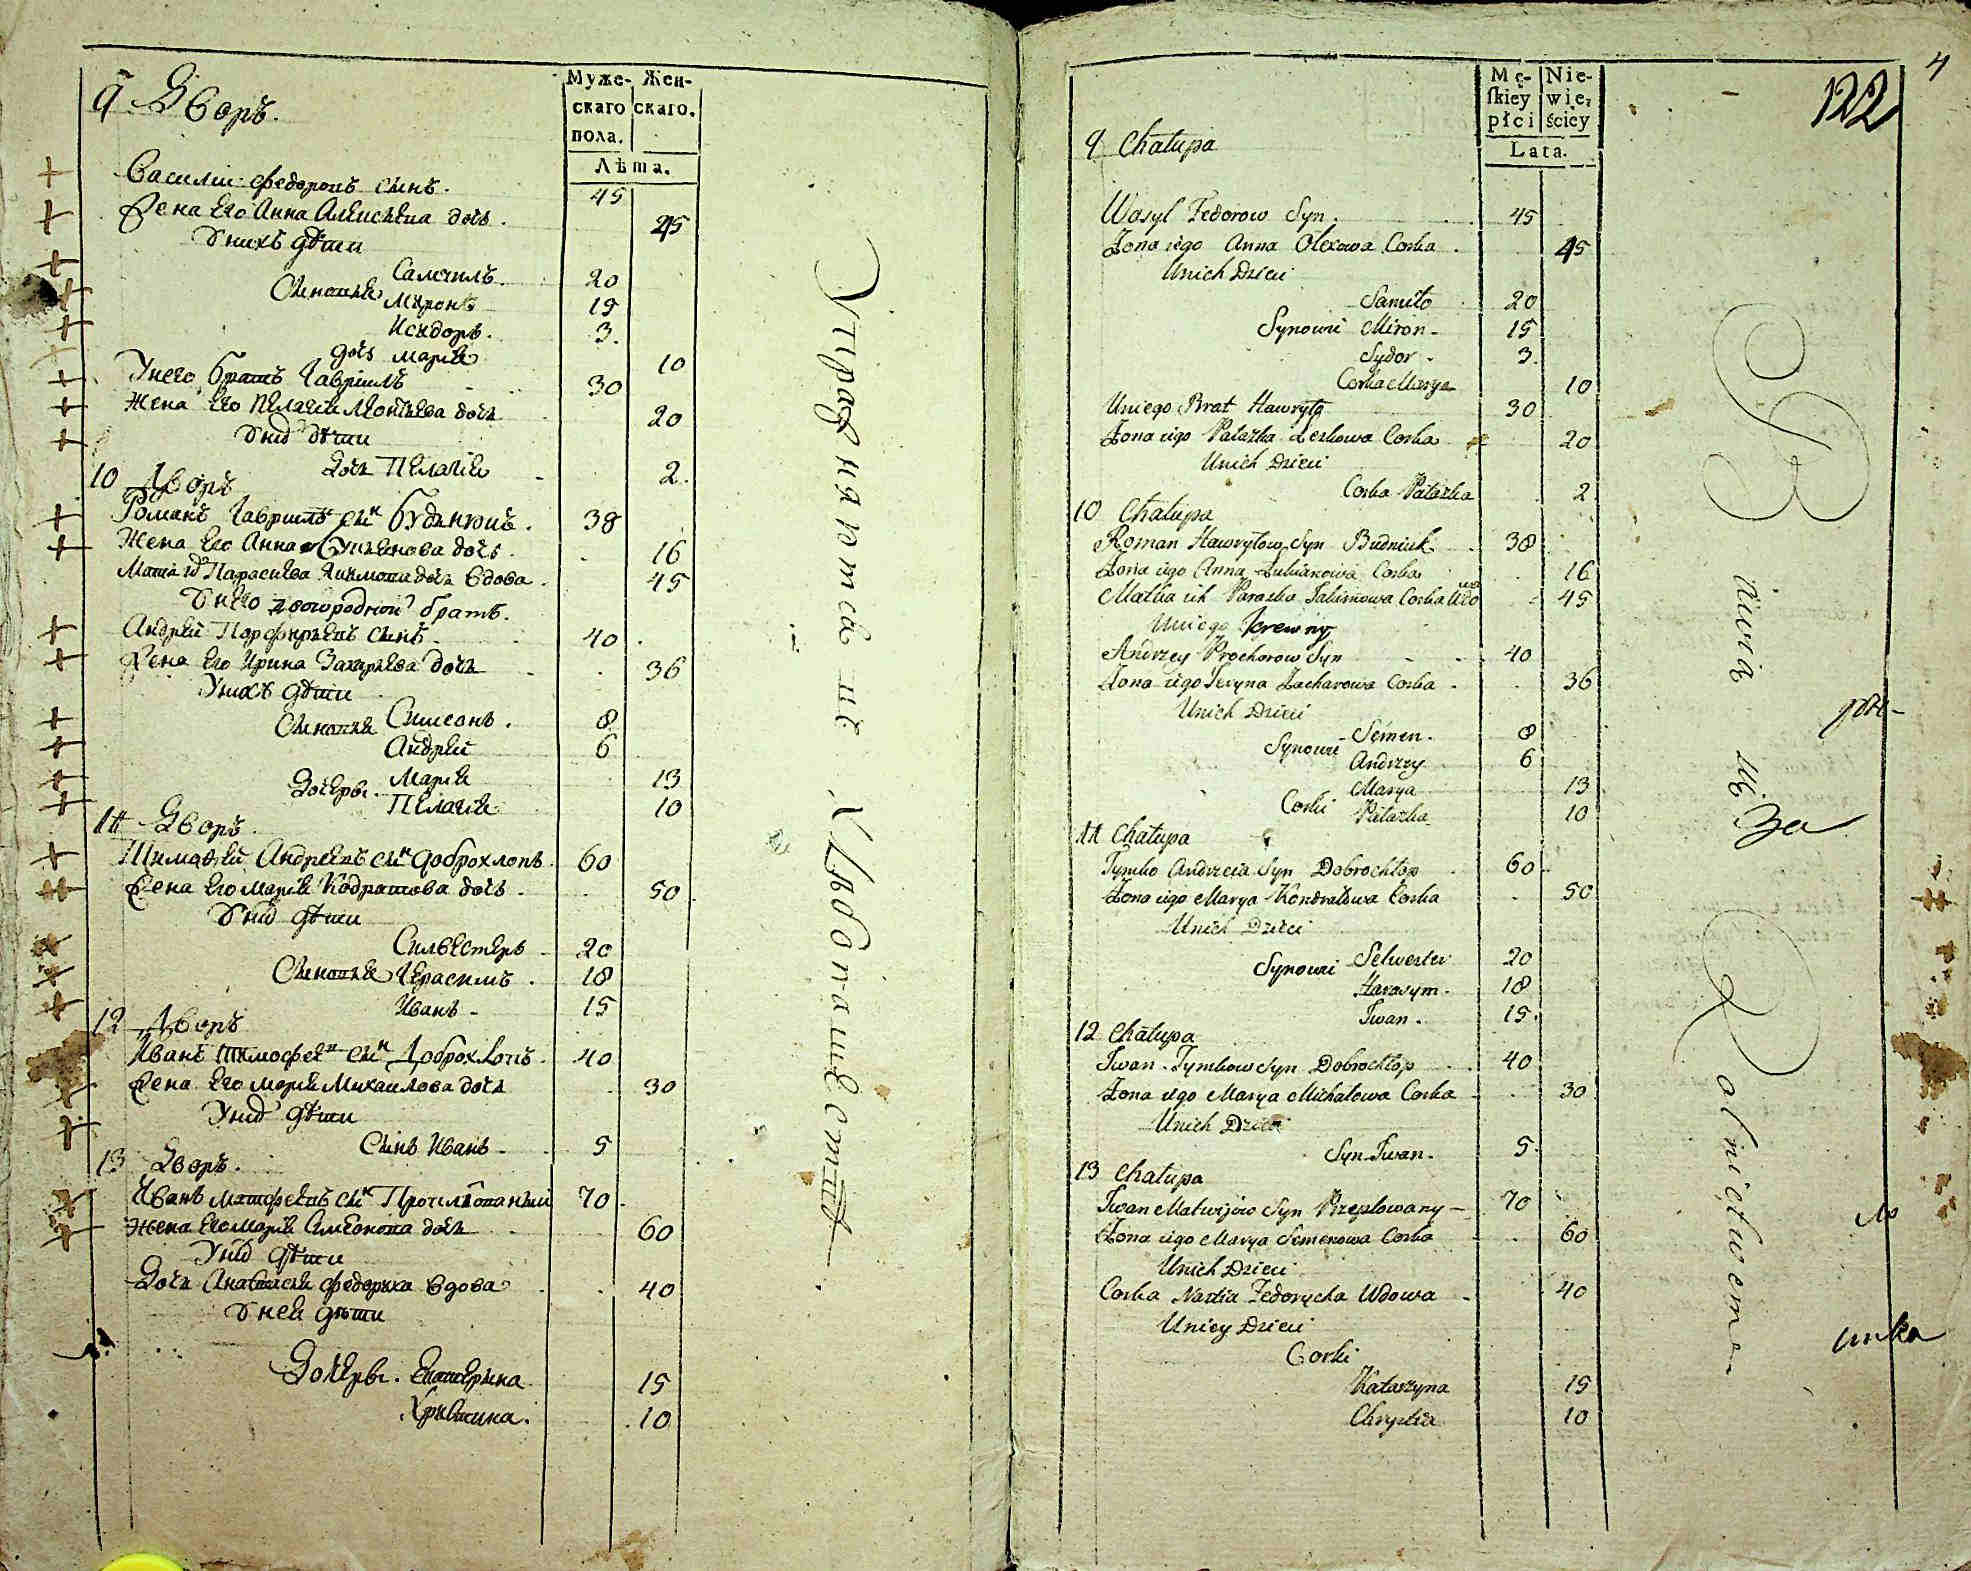 Муже- Жен-
скаго скаго.
пола.
Лѣта.
9 Дворъ.
Василий Федоровъ сынъ. 45
Жена Его Анна Алексѣева дочь. 45
У нихъ дѣти
Самоилъ. 20
Сыновья Миронъ 15
Исидоръ. 3.
дочь Мария 10
У него братъ Гаврiилъ 30
Жена Его Пелагея дочь 20
дѣти
Дочь Пелагiя 2.
10 Дворъ
Романъ сынъ 38
Жена Его Анна дочь. 16
дочь вдова. 45
У него двоюродной братъ.
Андрей сынъ. 40
Жена Его Ирина Захарьева дочь 36
У нихъ дѣти
Сыновья Симеонъ. 8
Андрей 6
Дочери. Марiя 13
Пелагiя 10
11 Дворъ.
Андреевъ сын Доброхлопъ. 60
Жена Его Марiя дочь. 50.
дѣти
Сильвестеръ 20
Сыновья Герасимъ. 18
Иванъ 15
12 Дворъ
Иванъ Тимофеев сын Доброхлопъ. 40
Жена Его Марiя Михаилова дочь 30
дѣти
Сынъ Иванъ 5
13 Дворъ.
Иванъ сын 70
Жена Его Марiя дочь 60
дѣти
Дочь вдова 40
У ней дѣти
Дочери. Екатерина 15
Христина. 10
Упражняется въ Хлѣбопашествѣ
4
122
Mę- Nie-
skiey wie-
płci ściey
Lata.
9 Chałupa
Wasyl Fedorow Syn. 45
Żona iego Anna Olexowa Corka. 45
U nich Dzieci
Samiło 20
Synowie Miron 15
Sydor 3.
Corka Marya 10
U niego Brat Hawryło 30
Żona iego Pałazka Leskowa Corka 20
U nich Dzieci
Corka Pałazka 2
10 Chałupa
Roman Hawryłow Syn Budniuk 38
Żona iego Anna Corka 16
Matka ich Paraska Corka 45
U niego krewny
Andrzey Prochorow Syn 40
Żona iego Iryna Zacharowa Corka. 36
U nich Dzieci
Synowie Semen. 8
Andrzey 6
Corki Marya 13
Pałazka 10
11 Chałupa
Tymko Andrzeia Syn Dobrochłop 60
Żona iego Marya Kondratowa Corka 50
U nich Dzieci
Synowie Selwester 20
Harasym. 18
Iwan. 15.
12 Chałupa
Iwan Tymkow Syn Dobrochłop 40
Żona iego Marya Michałowa Corka 30
U nich Dzieci
Syn Iwan. 5.
13 Chałupa
Iwan Matwijow Syn Przepłowany 70
Żona iego Marya Semenowa Corka 60
U nich Dzieci
Corka Nastia Fedorycha Wdowa 40
U niey Dzieci
Corki
Katarzyna 15
Chrystia 10
Bawią się Rolnictwem
За